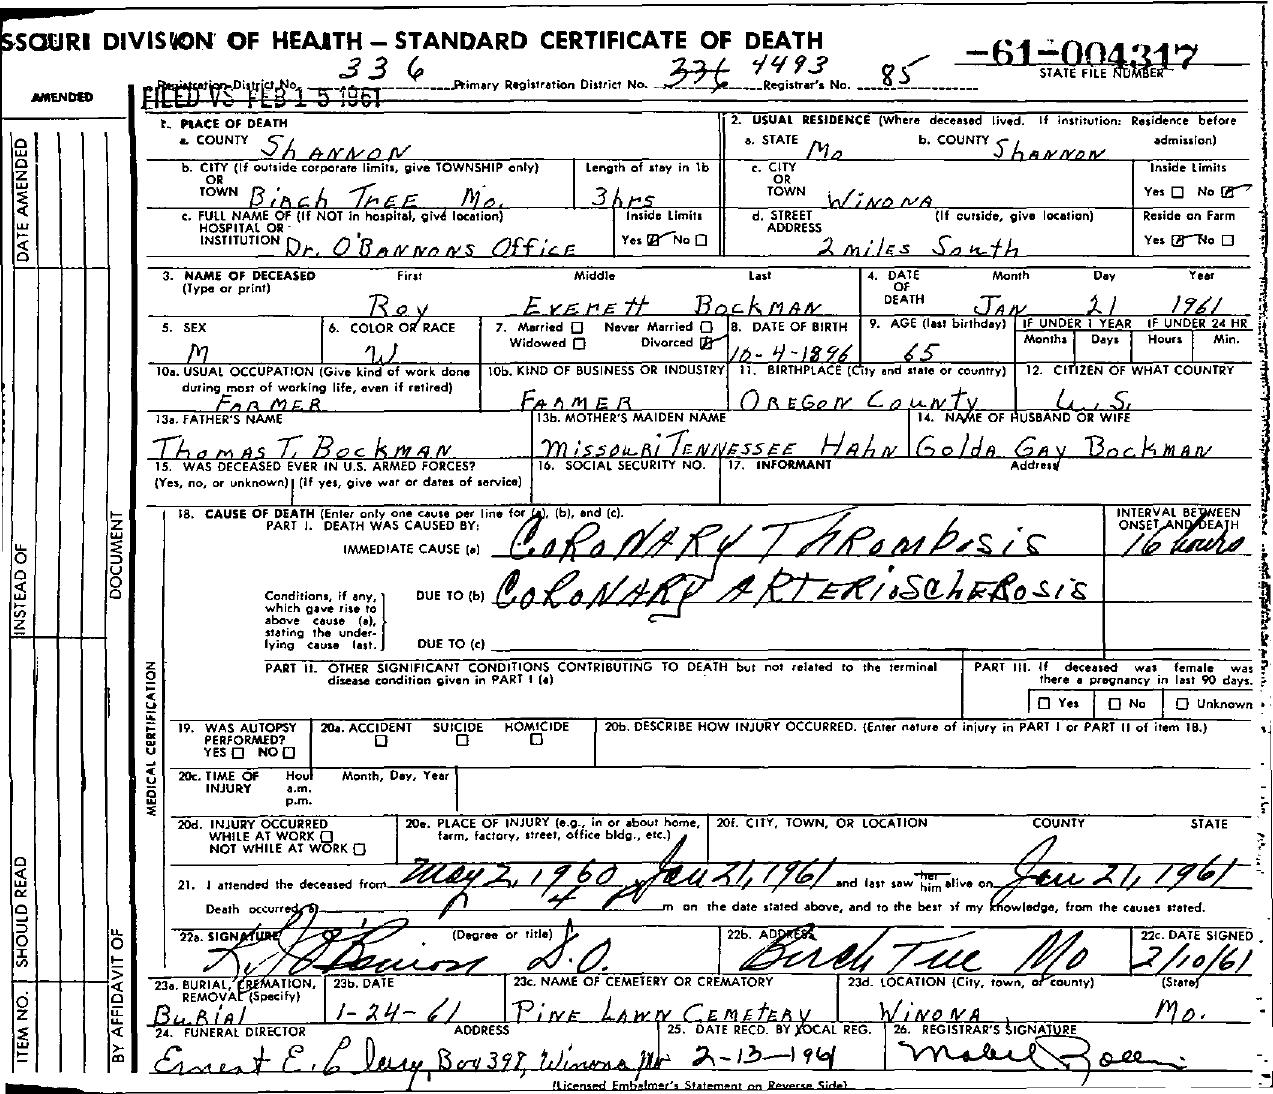 SSOURI DIVISION OF HEALTH – STANDARD CERTIFICATE OF DEATH
-61-004317
STATE FILE NUMBER
Registration District No. 336 Primary Registration District No. 336 4493 Registrar's No. 85
FILED VS FEB 15 1961
AMENDED
DATE AMENDED
INSTEAD OF
SHOULD READ
ITEM NO.
DOCUMENT
BY AFFIDAVIT OF
MEDICAL CERTIFICATION
1. PLACE OF DEATH
a. COUNTY Shannon
2. USUAL RESIDENCE (Where deceased lived. If institution: Residence before admission)
a. STATE Mo b. COUNTY Shannon
b. CITY (If outside corporate limits, give TOWNSHIP only) OR TOWN Birch Tree Mo.
Length of stay in 1b 3hrs
c. CITY OR TOWN Winona
Inside Limits Yes No
c. FULL NAME OF (If NOT in hospital, give location) HOSPITAL OR INSTITUTION Dr. O'Bannons Office
Inside Limits Yes No
d. STREET ADDRESS (If outside, give location) 2 miles South
Reside on Farm Yes No
3. NAME OF DECEASED (Type or print) First Middle Last
Roy Everett Bockman
4. DATE OF DEATH Month Day Year
Jan 21 1961
5. SEX M
6. COLOR OR RACE W
7. Married Never Married Widowed Divorced
8. DATE OF BIRTH 10-4-1896
9. AGE (last birthday) 65
IF UNDER 1 YEAR Months Days
IF UNDER 24 HR Hours Min.
10a. USUAL OCCUPATION (Give kind of work done during most of working life, even if retired) Farmer
10b. KIND OF BUSINESS OR INDUSTRY Farmer
11. BIRTHPLACE (City and state or country) Oregon County
12. CITIZEN OF WHAT COUNTRY U.S.
13a. FATHER'S NAME Thomas T. Bockman
13b. MOTHER'S MAIDEN NAME Missouri Tennessee Hahn
14. NAME OF HUSBAND OR WIFE Golda Gay Bockman
15. WAS DECEASED EVER IN U.S. ARMED FORCES? (Yes, no, or unknown) (If yes, give war or dates of service)
16. SOCIAL SECURITY NO.
17. INFORMANT Address
18. CAUSE OF DEATH (Enter only one cause per line for (a), (b), and (c).
PART I. DEATH WAS CAUSED BY:
IMMEDIATE CAUSE (a) Coronary Thrombosis
INTERVAL BETWEEN ONSET AND DEATH 16 hours
Conditions, if any, which gave rise to above cause (a), stating the underlying cause last.
DUE TO (b) Coronary Arterioscherosis
DUE TO (c)
PART II. OTHER SIGNIFICANT CONDITIONS CONTRIBUTING TO DEATH but not related to the terminal disease condition given in PART I (a)
PART III. If deceased was female was there a pregnancy in last 90 days.
Yes No Unknown
19. WAS AUTOPSY PERFORMED? YES NO
20a. ACCIDENT SUICIDE HOMICIDE
20b. DESCRIBE HOW INJURY OCCURRED. (Enter nature of injury in PART I or PART II of item 18.)
20c. TIME OF INJURY Hour a.m. p.m. Month, Day, Year
20d. INJURY OCCURRED WHILE AT WORK NOT WHILE AT WORK
20e. PLACE OF INJURY (e.g., in or about home, farm, factory, street, office bldg., etc.)
20f. CITY, TOWN, OR LOCATION COUNTY STATE
21. I attended the deceased from May 2, 1960 Jan 21, 1961 and last saw her him alive on Jan 21, 1961
Death occurred a 4 P m on the date stated above, and to the best of my knowledge, from the causes stated.
22a. SIGNATURE (Degree or title) D.O.
22b. ADDRESS Birch Tree Mo
22c. DATE SIGNED 2/10/61
23a. BURIAL, CREMATION, REMOVAL (Specify) Burial
23b. DATE 1-24-61
23c. NAME OF CEMETERY OR CREMATORY Pine Lawn Cemetery
23d. LOCATION (City, town, or county) (State) Winona Mo.
24. FUNERAL DIRECTOR ADDRESS
Ernest E. Box 398, Winona Mo
25. DATE RECD. BY LOCAL REG. 2-13-1961
26. REGISTRAR'S SIGNATURE Mabel
(Licensed Embalmer's Statement on Reverse Side)